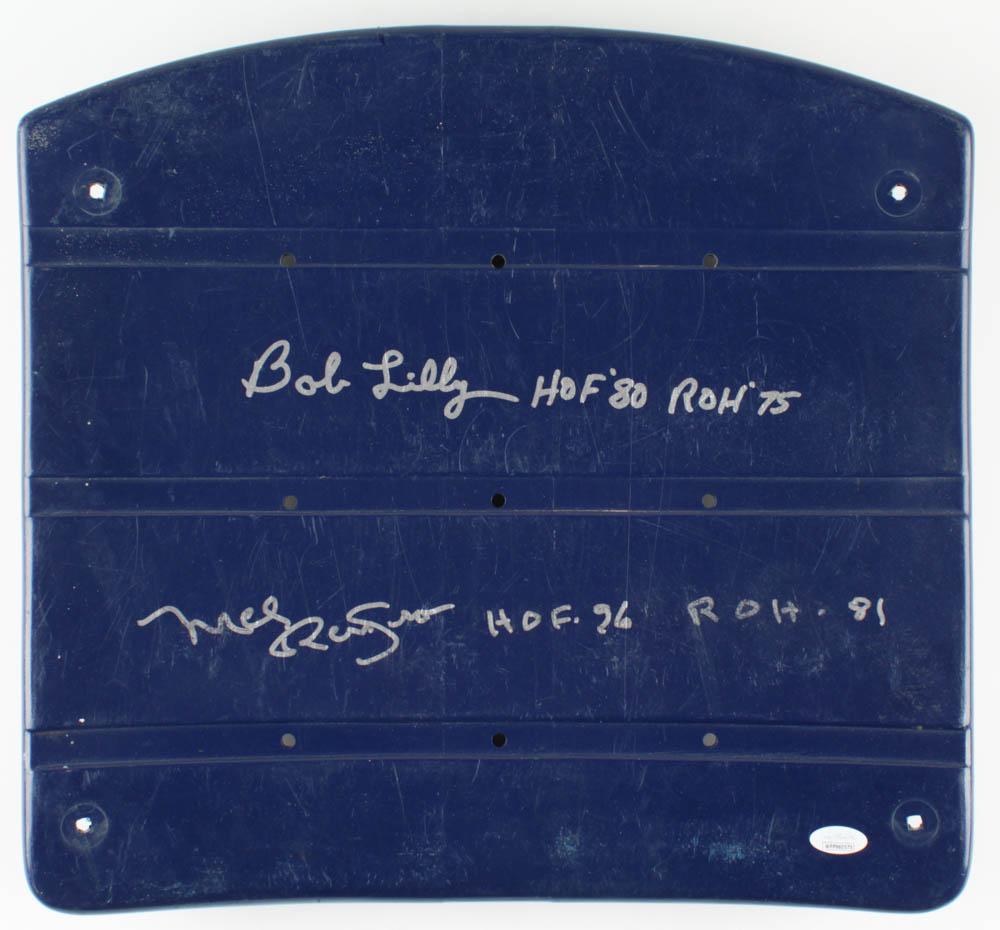 Bob Lilly HOF '80 ROH '75
Mel Renfro HOF. 96 ROH. 81